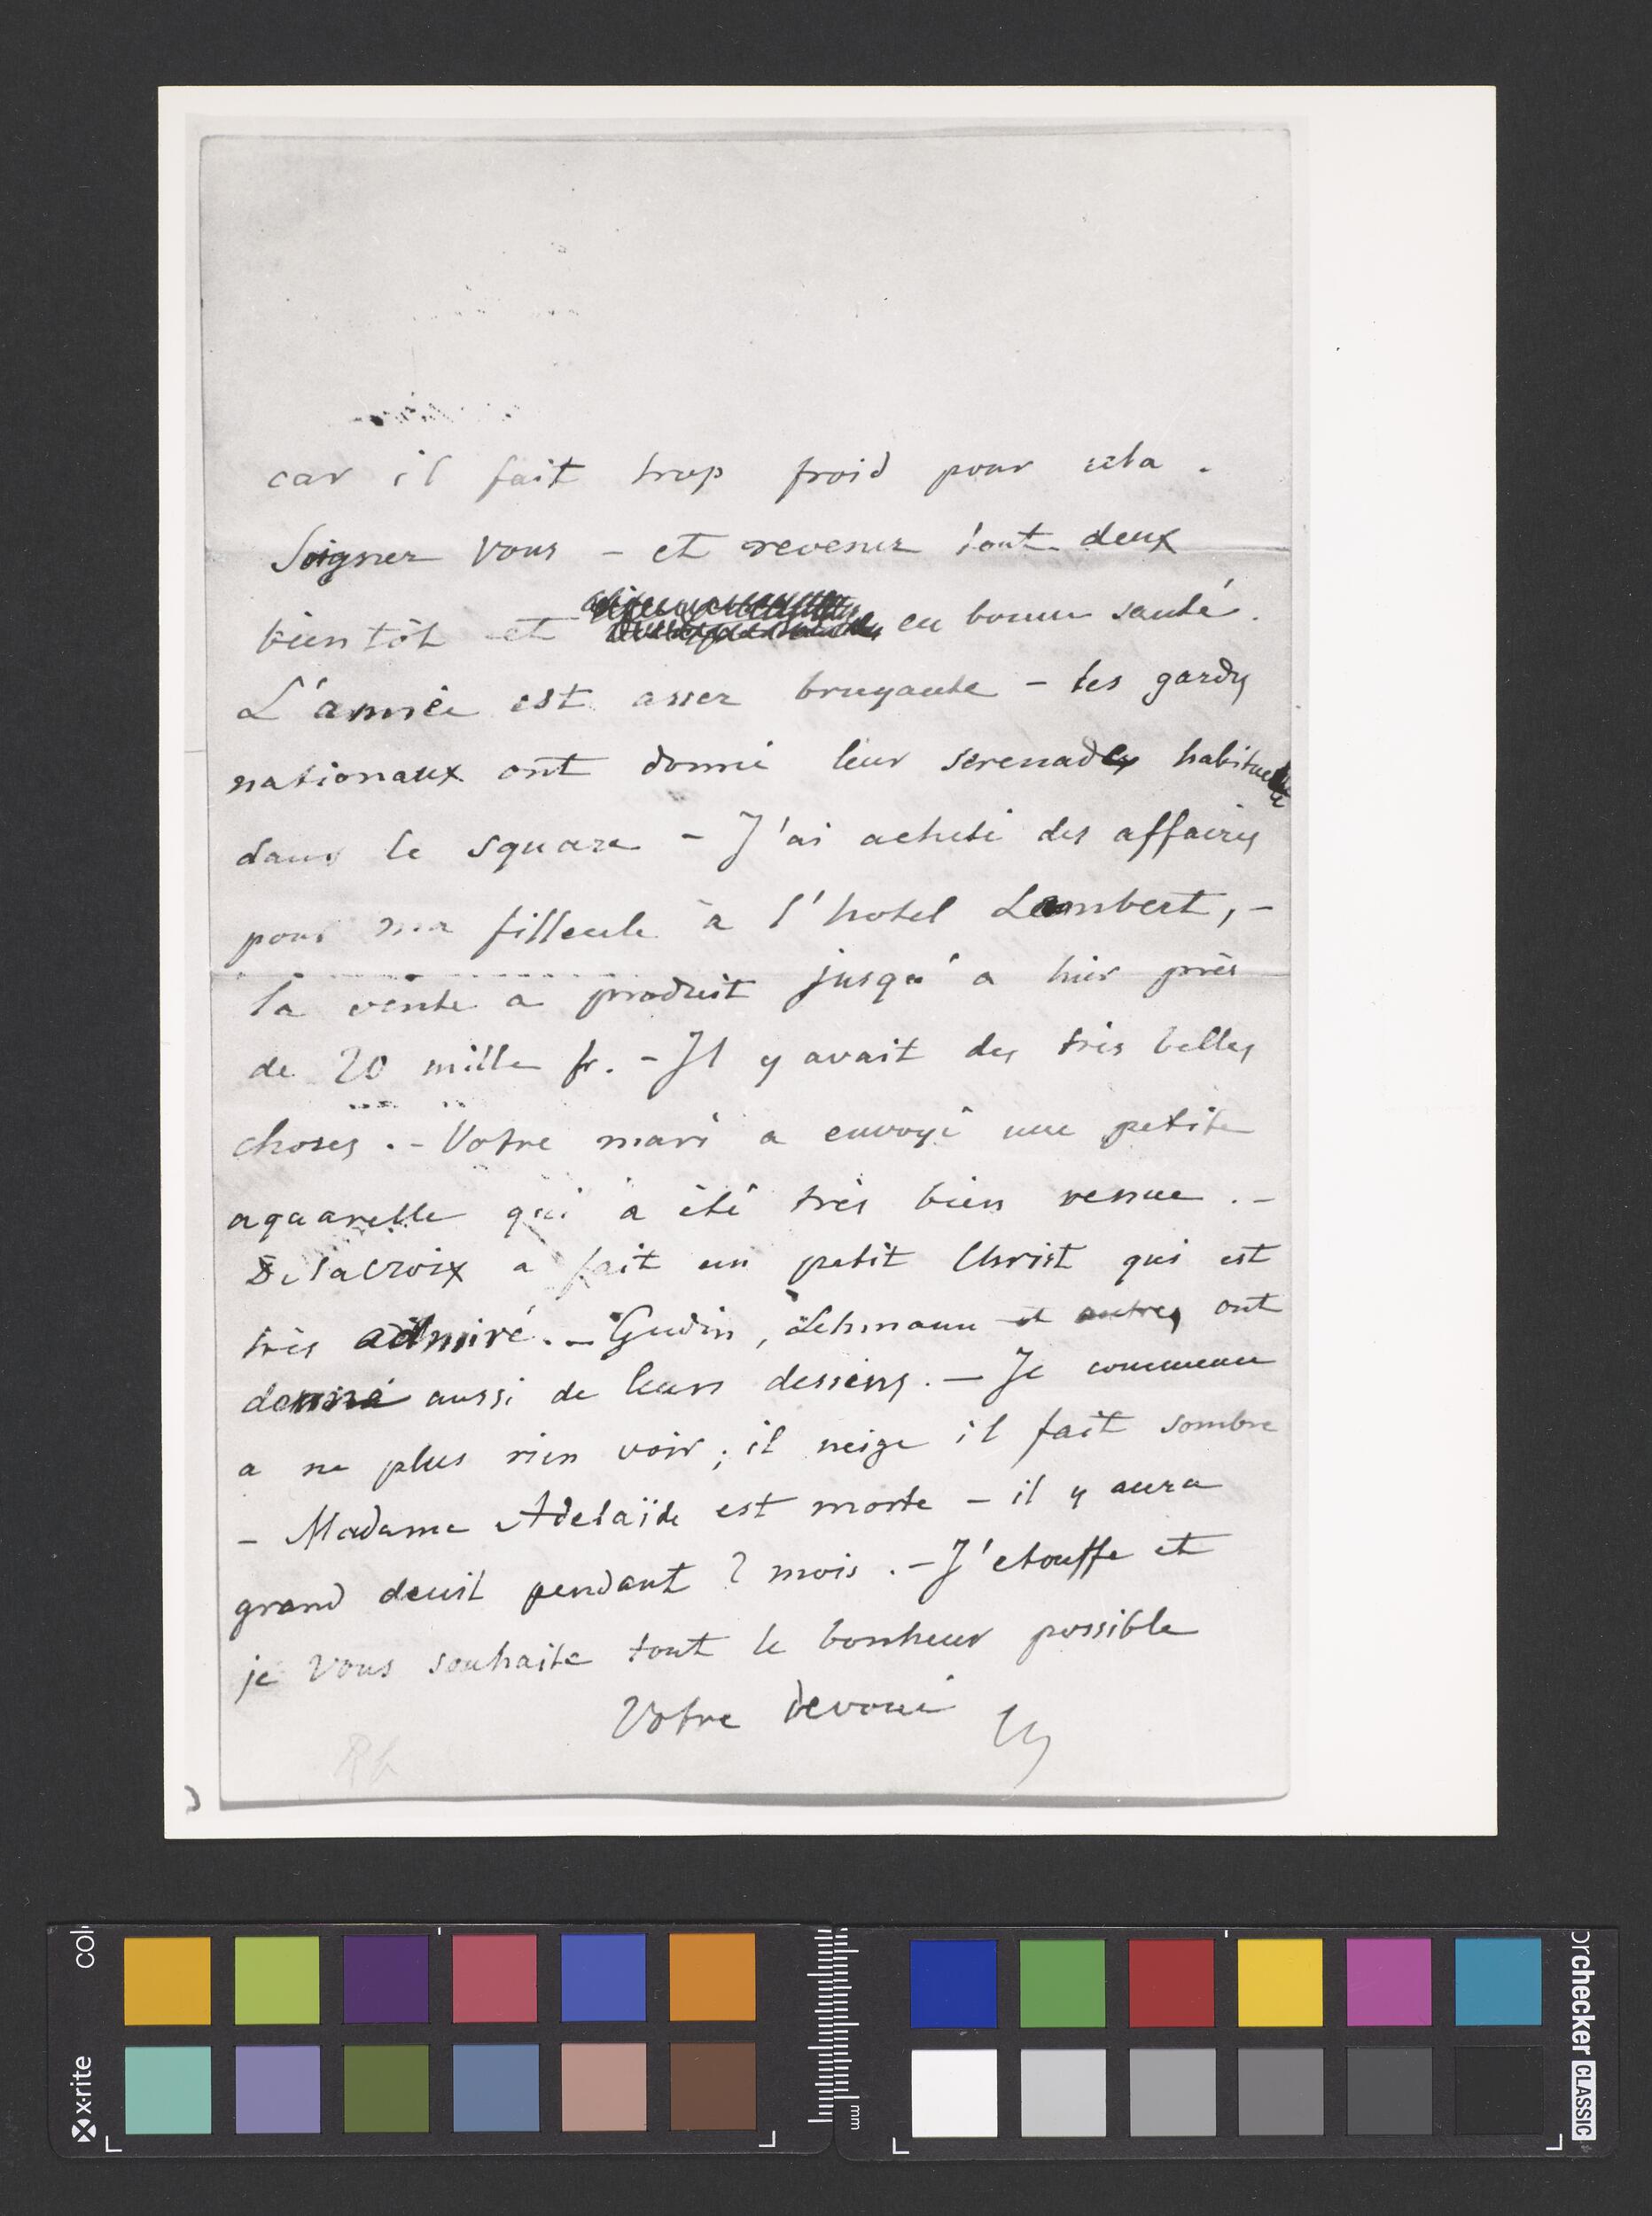 car il fait trop froid pour cela .
Soignez vous – et revenez tout deux
bientôt et en bonne santé .
L'année est assez bruyante – les gardes
nationaux ont donné leur serenades habituelle
dans le square – J'ai acheté des affaires
pour ma filleule à l'hotel Lambert, –
la vente a produit jusqu'a hier près
de 20 mille fr. – Il y avait des très belles
choses . – Votre mari a envoyé une petite
aquarelle qui a été très bien venue . –
Delacroix a fait un petit Christ qui est
très admiré. – Gudin , Lehmann et autres ont
donné aussi de leurs dessins . – Je commence
a ne plus rien voir ; il neige il fait sombre
– Madame Adelaïde est morte – il y aura
grand deuil pendant 2 mois . – J'etouffe et
je vous souhaite tout le bonheur possible
Votre devoué Ch
x-rite
mm
orchecker CLASSIC